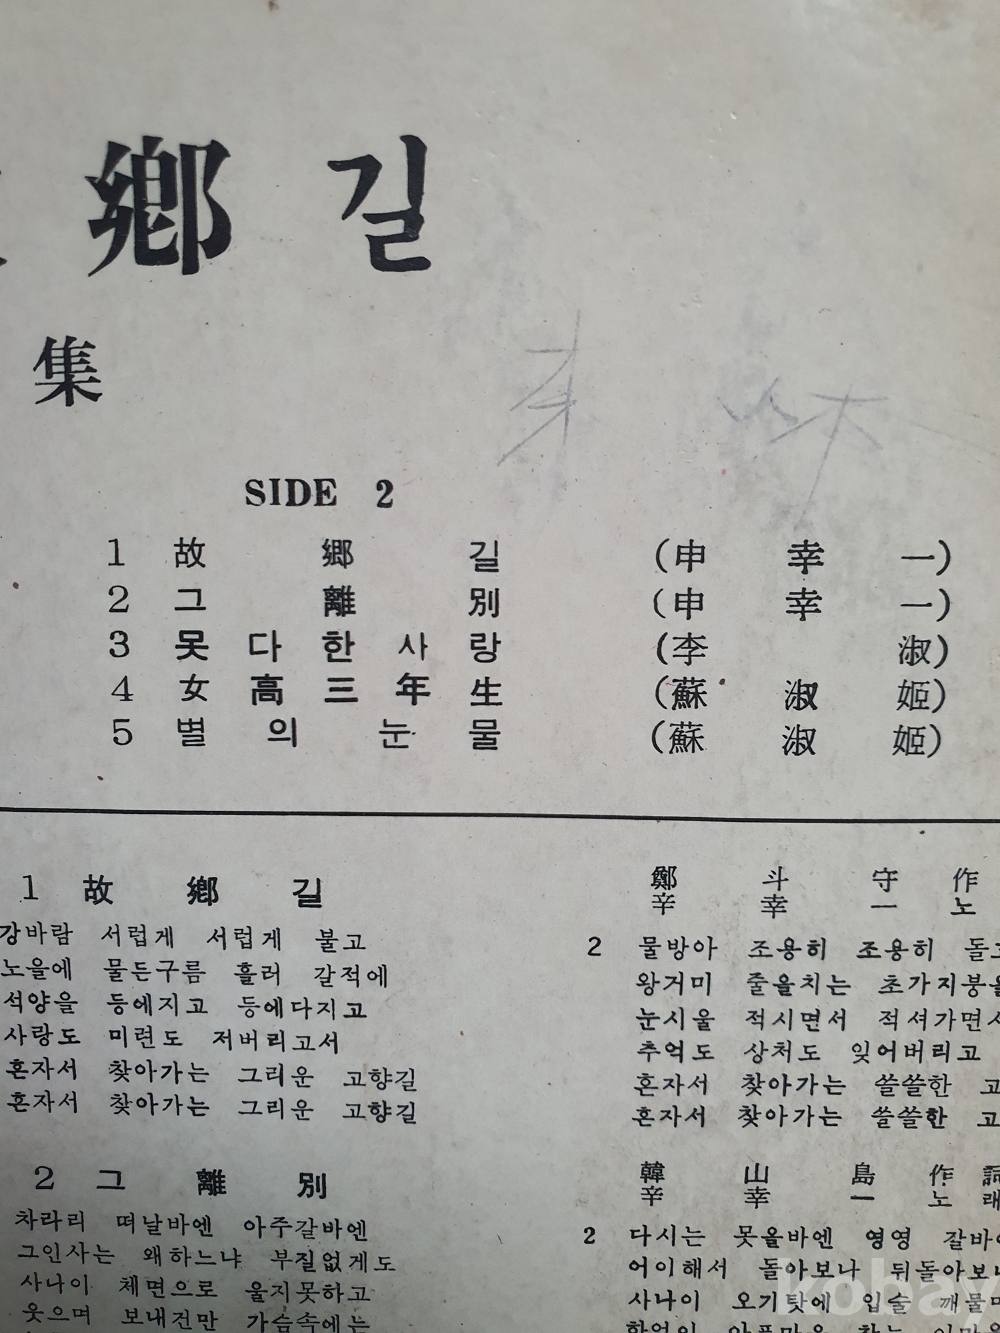 鄕길
集
SIDE 2
1 故鄕길 (申幸一)
2 그離別 (申幸一)
3 못다한사랑 (李淑)
4 女高三年生 (蘇淑姬)
5 별의눈물 (蘇淑姬)
1 故鄕길
鄭斗守作
辛幸一노
강바람 서럽게 서럽게 불고
노을에 물든구름 흘러 갈적에
석양을 등에지고 등에다지고
사랑도 미련도 저버리고서
혼자서 찾아가는 그리운 고향길
혼자서 찾아가는 그리운 고향길
2 물방아 조용히 조용히 돌고
왕거미 줄을치는 초가지붕을
눈시울 적시면서 적셔가면서
추억도 상처도 잊어버리고
혼자서 찾아가는 쓸쓸한 고
혼자서 찾아가는 쓸쓸한 고
2 그離別
韓山島作詞
辛幸一노래
차라리 떠날바엔 아주갈바엔
그인사는 왜하느냐 부질없게도
사나이 체면으로 울지못하고
웃으며 보내전만 가슴속에는
2 다시는 못올바엔 영영 갈바에
어이해서 돌아보나 뒤돌아보나
사나이 오기탓에 입술 깨물며
kobay